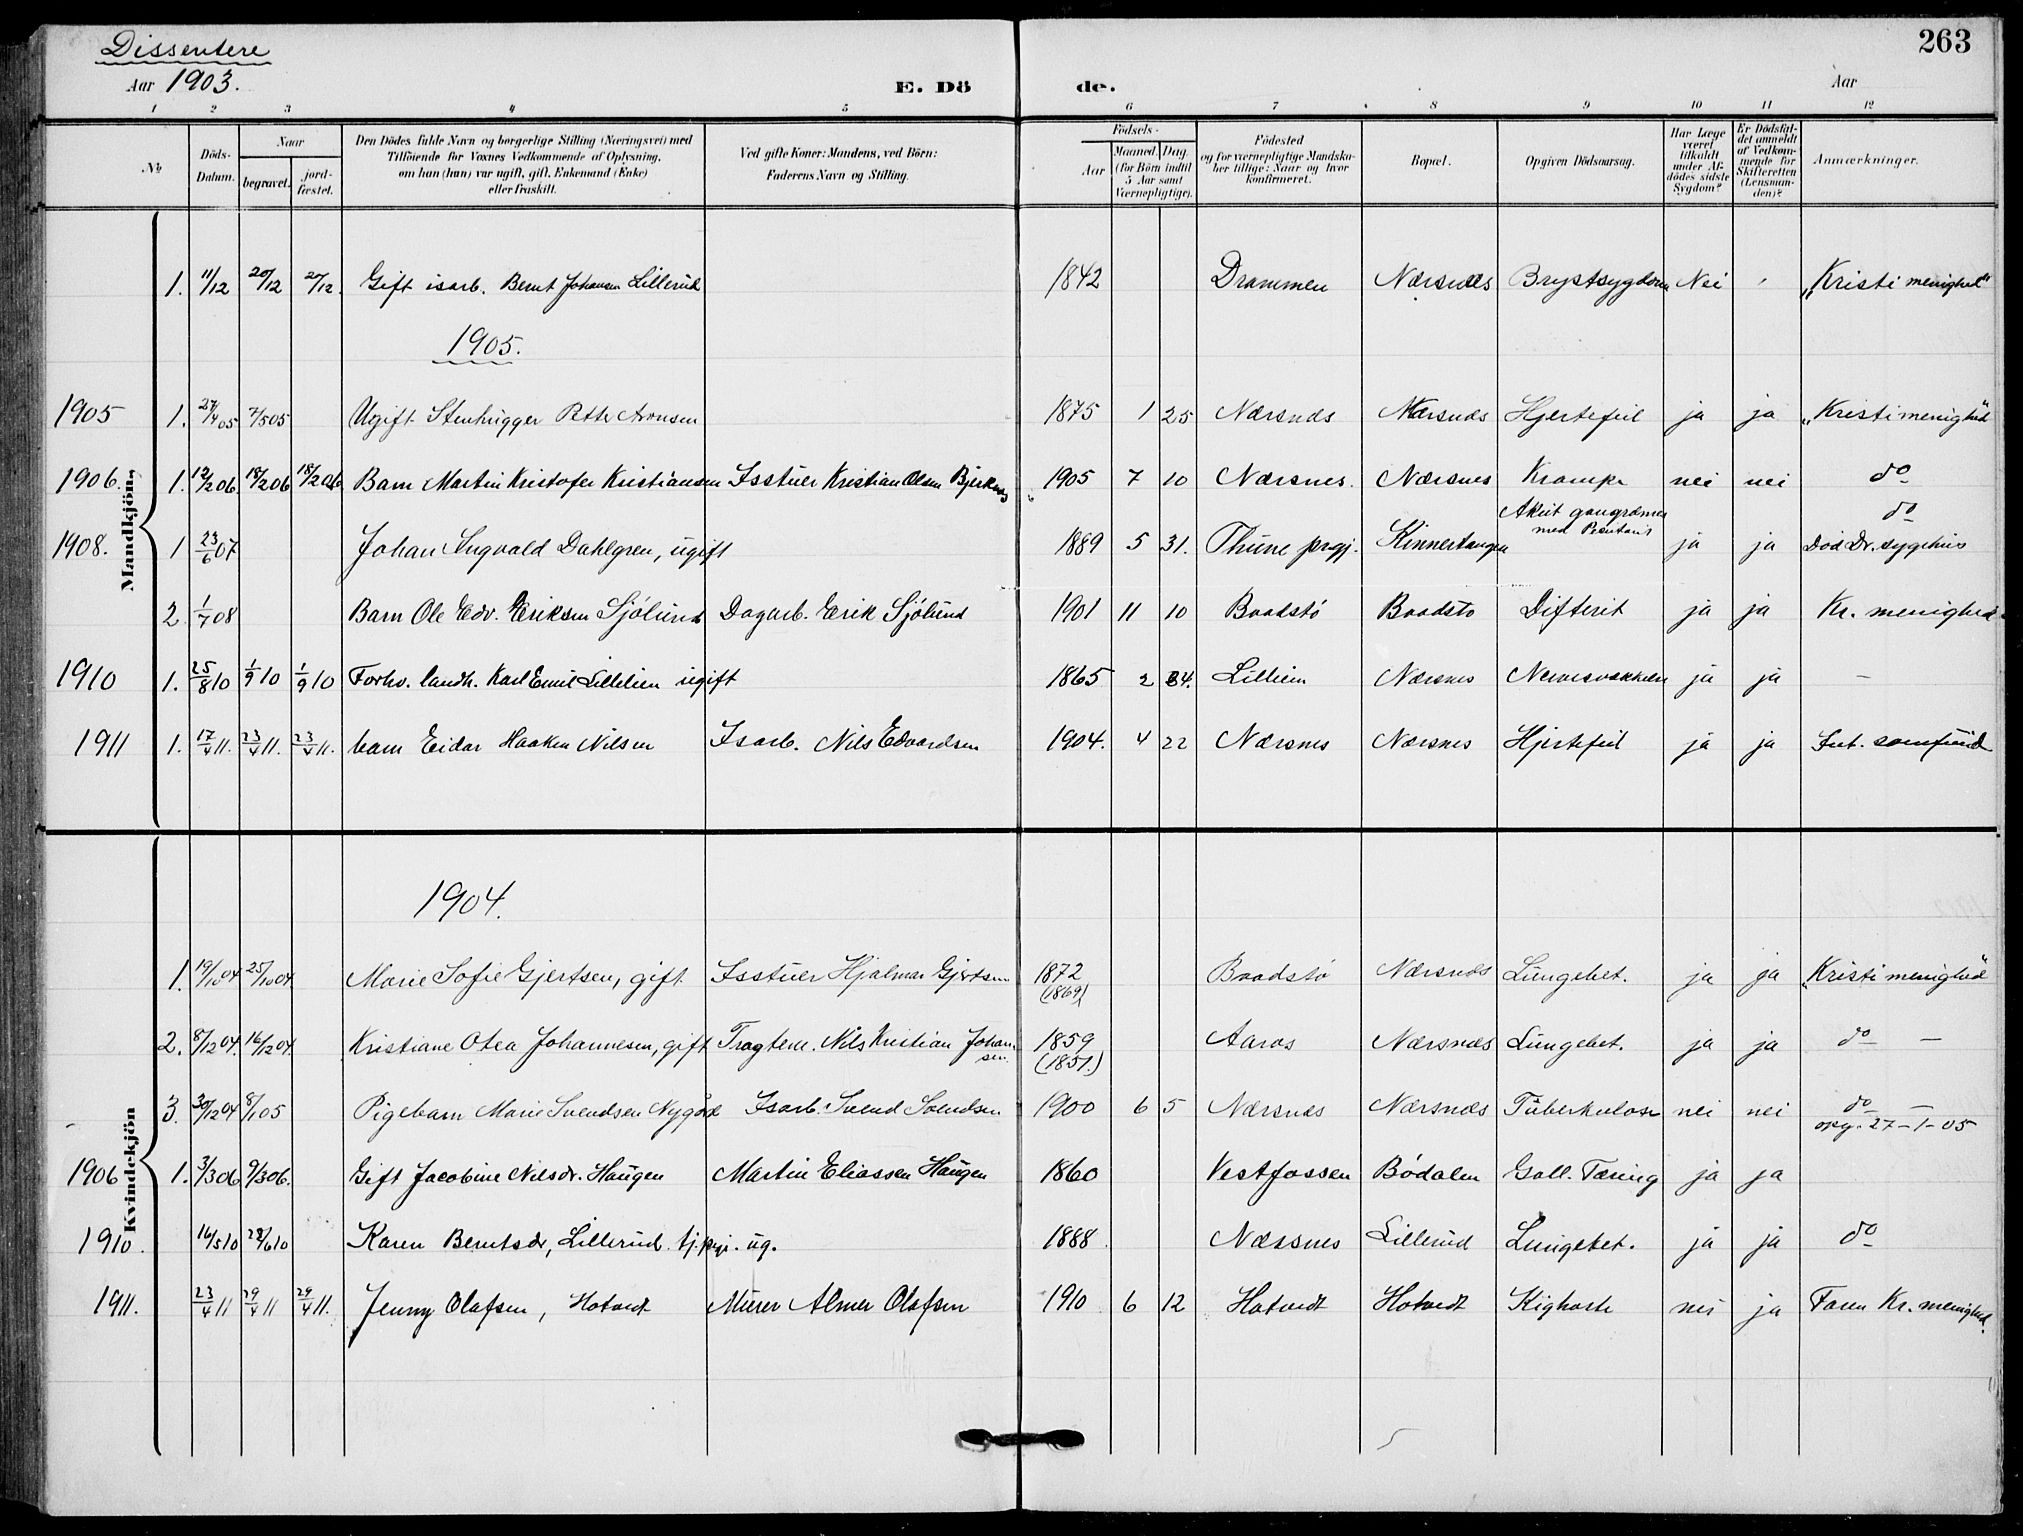 Dissentere
263
Aar 1903.
E. Dö de.
Aar
1 2 3 4 5 6 7 8 9 10 11 12
№
Döds-Datum.
Naar
begravet.
jord-fæstet.
Den Dödes fulde Navn og borgerlige Stilling (Næringsvei) med
Tilföiende for Voxnes Vedkommende af Oplysning,
om han (hun) var ugift, gift, Enkemand (Enke)
eller fraskilt.
Ved gifte Koner: Mandens, ved Börn:
Faderens Navn og Stilling.
Födsels-
Aar
Maaned. Dag.
(for Börn indtil
5 Aar samt
Værnepligtige).
Födested
og for værnepligtige Mandska-
ber tillige: Naar og hvor
konfirmeret.
Bopæl.
Opgiven Dödsaarsag.
Har Læge
været
tilkaldt
under Af-
dödes sidste
Sygdom?
Er Dödsfal-
det anmeldt
af Vedkom-
mende for
Skifteretten
(Lensman-
den)?
Anmærkninger.
Mandkjön.
1. 11/12 20/12 20/12. Gift isarb. Bernt Johansen Lillerud 1842 Drammen Nærsnæs Brystsygdom Nei "Kristi menighed"
1905.
1905 1. 27/4 05 7/5 05 Ugift Stenhugger Petter Aronsen 1875 1 25 Nærsnæs Nærsnæs Hjertefeil ja ja "Kristi menighed"
1906. 1. 12/2 06 18/2 06 18/2 06 Barn Martin Kristofer Kristiansen Isstuer Kristian Olsen 1905 7 10 Nærsnes. Nærsnes Krampe nei nei do
1908. 1 23/6 07 Johan Ingvald Dahlgren, ugift 1889 5 31. Thune prgj. Kinnertangen Akut med ja ja do
Död Dr. sygehus
2. 1/7 08 Barn Ole Edv. Eriksen Sjölund Dagarb. Erik Sjölund 1901 11 10 Baadstö Baadstö Difterit ja ja Kr. menighed.
1910 1. 25/8 10 1/9 10 1/9 10 Forhv. landh. Karl Emil Lillelien ugift 1865 2 Lillien Nærsnes ja ja –
1911 1. 17/4 11. 23/4 11. 23/4 11. barn Eidar Haaken Nilsen Isarb. Nils Edvardsen 1904. 4 22 Nærsnes Nærsnes Hjertefeil ja ja samfund
Kvindekjön
1904.
1. 19/10 04 25/10 04 Marie Sofie Gjertsen, gift Isstuer Hjalmar Gjertsen 1872 (1869) Baadstö Nærsnæs Lungebet. ja ja "Kristi menighed
2. 8/12 04. 16/12 04. Kristiane Otea Johannesen, gift Nils Kristian Johansen 1859 (1851.) Aaros Nærsnæs Lungebet. ja ja do –
3. 30/12 04 8/1 05 Pigebarn Marie Svendsen Nygård Isarb. Svend Svendsen 1900 6 5 Nærsnæs Nærsnæs Tuberkulose nei nei do –
opg. 27-1-05
1906 1. 3/3 06 9/3 06. Gift Jacobine Nilsdr. Haugen Martin Eliassen Haugen 1860 Vestfossen Bödalen Gall. Tæring ja ja
1910. 16/5 10 Karen Berntsdr, Lillerud. tj.pige. ug. 1888 Nærsnes Lillerud Lungebet. ja ja do
1911. 23/4 11 29/4 11 29/4 11. Jenny Olafsen, Hotvedt Murer Almer Olafsen 1910 6 12 Hotvedt Hotvedt Kighoste nei ja Faren Kr. menighed.